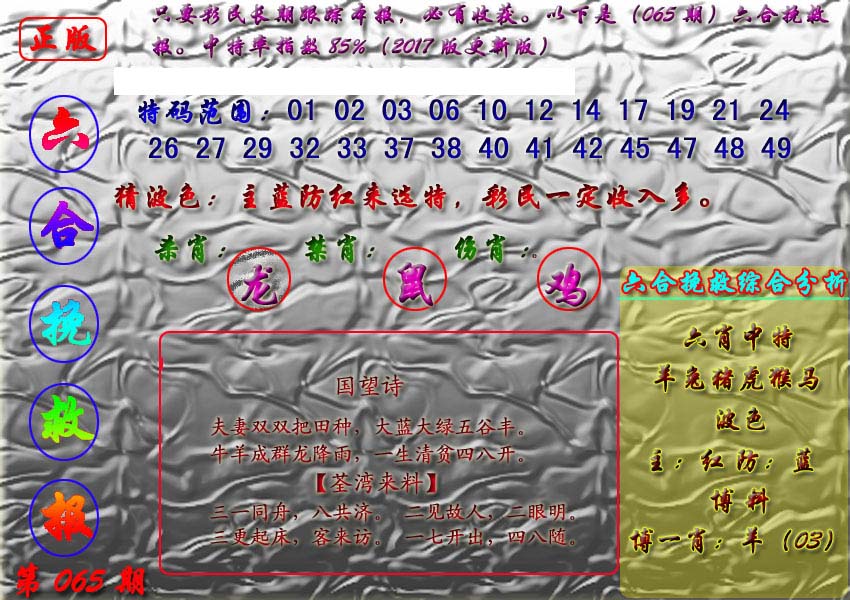 正版
只要彩民长期跟踪本报，必有收获。以下是（065期）六合挽救
报。中特率指数85%（2017版更新版）
六
合
挽
救
报
第065期
特码范围：01 02 03 06 10 12 14 17 19 21 24
26 27 29 32 33 37 38 40 41 42 45 47 48 49
猜波色：主蓝防红来选特，彩民一定收入多。
杀肖：龙 禁肖：鼠 伤肖：。鸡
国望诗
夫妻双双把田种，大蓝大绿五谷丰。
牛羊成群龙降雨，一生清贫四八开。
【荃湾来料】
三一同舟，八共济。 二见故人，二眼明。
三更起床，客来访。 一七开出，四八随。
六合挽救综合分析
六肖中特
羊兔猪虎猴马
波色
主：红防：蓝
博料
博一肖：羊（03）